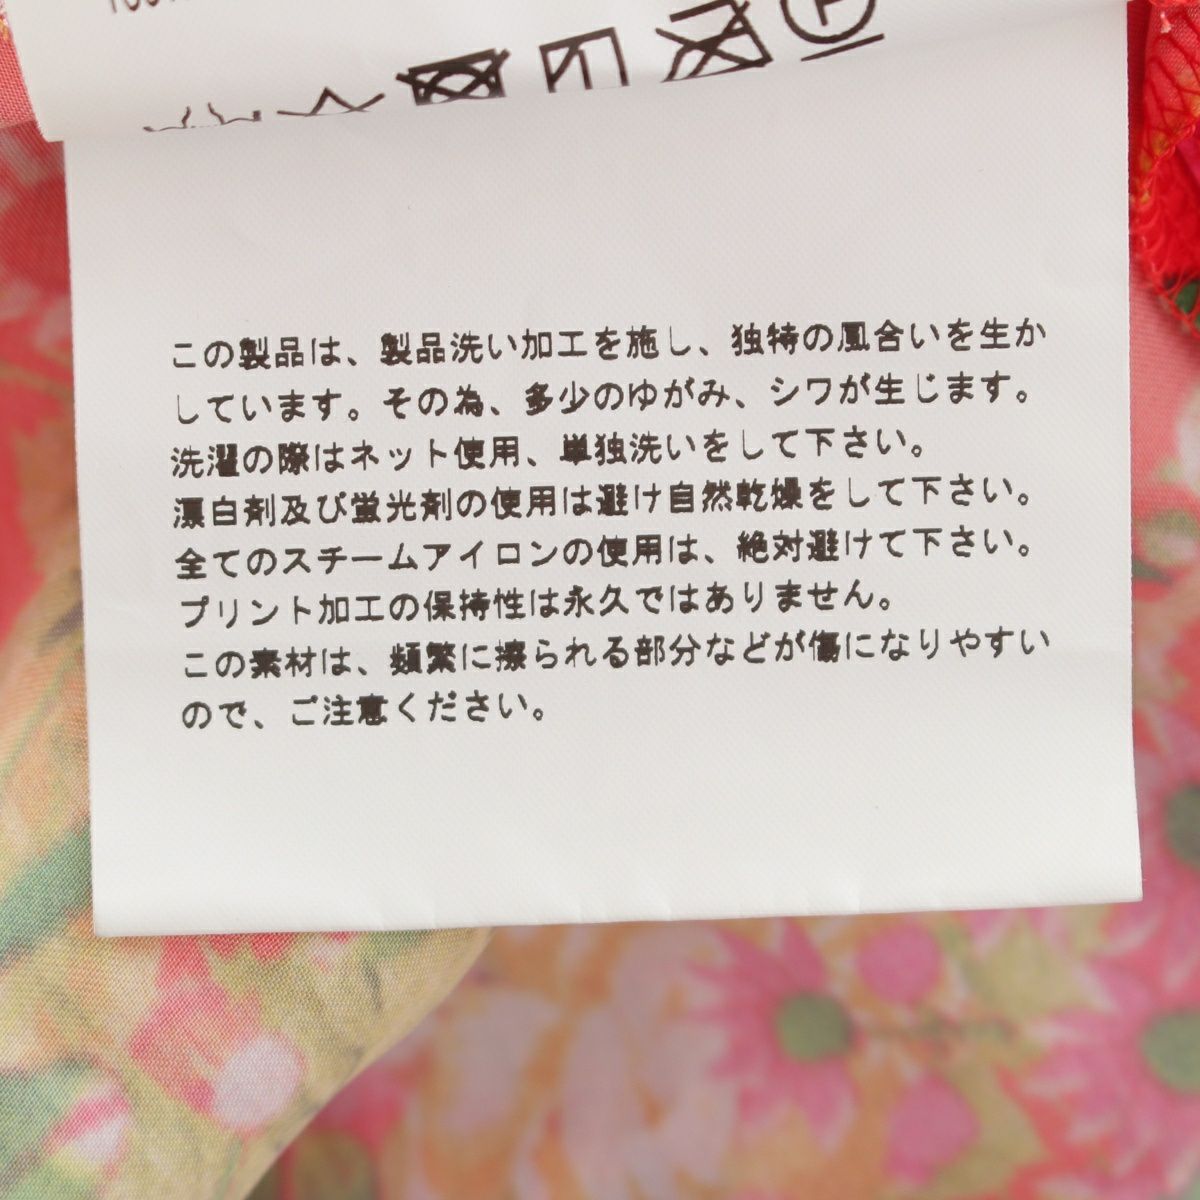 この製品は、製品洗い加工を施し、独特の風合いを生か
しています。その為、多少のゆがみ、シワが生じます。
洗濯の際はネット使用、単独洗いをして下さい。
漂白剤及び蛍光剤の使用は避け自然乾燥をして下さい。
全てのスチームアイロンの使用は、絶対避けて下さい。
プリント加工の保持性は永久ではありません。
この素材は、頻繁に擦られる部分などが傷になりやすい
ので、ご注意ください。